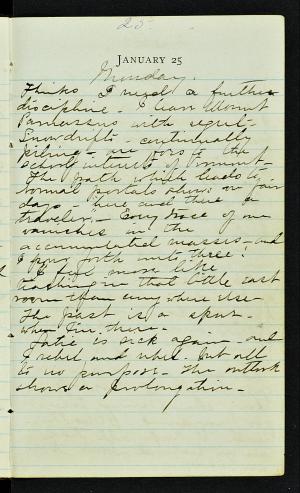 25
JANUARY 25
Monday.
Thinks I need a further
discipline - I leave Mount
Parnassus with regret -
Snowdrifts - continually
piling - are foes to the
school interests of Vermont -
The path which leads to
Normal portals shows on fair
days - here and there a
traveler, - Every trace of one
vanishes in the
accumulated masses - and
I pour forth unto three!
I feel more like
teaching in that little east
room than any where else
The past is a spur -
when I'm there -
Katie is sick again - and
I rebel and rebel - but all
to no purpose - The outlook
shows a prolongation -